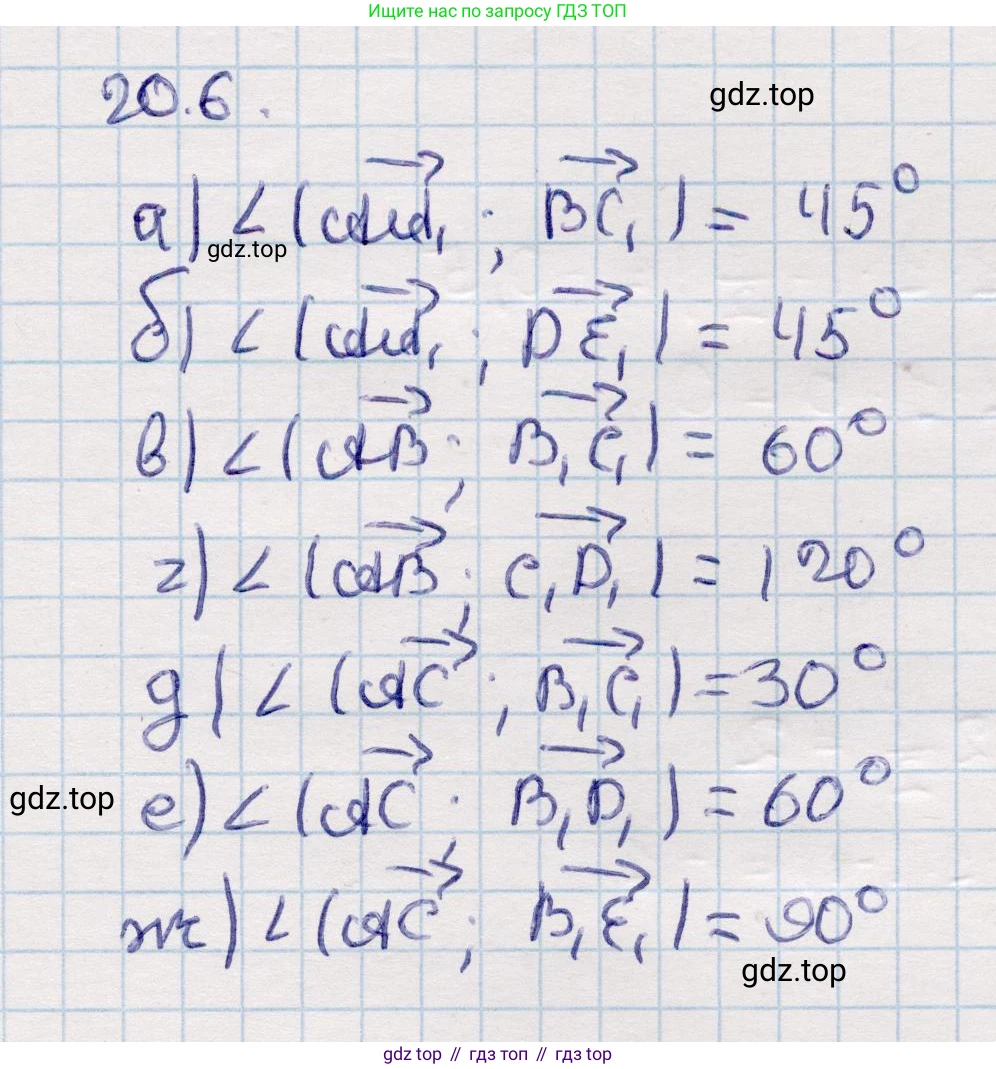 Ищите нас по запросу ГДЗ ТОП
20.6.
gdz.top
а) ∠(AA₁; BC₁) = 45°
gdz.top
б) ∠(AA₁; DE₁) = 45°
в) ∠(AB; B₁C₁) = 60°
г) ∠(AB; C₁D₁) = 120°
д) ∠(AC; B₁C₁) = 30°
gdz.top
е) ∠(AC; B₁D₁) = 60°
ж) ∠(AC; B₁E₁) = 90°
gdz.top
gdz top // гдз топ // гдз top